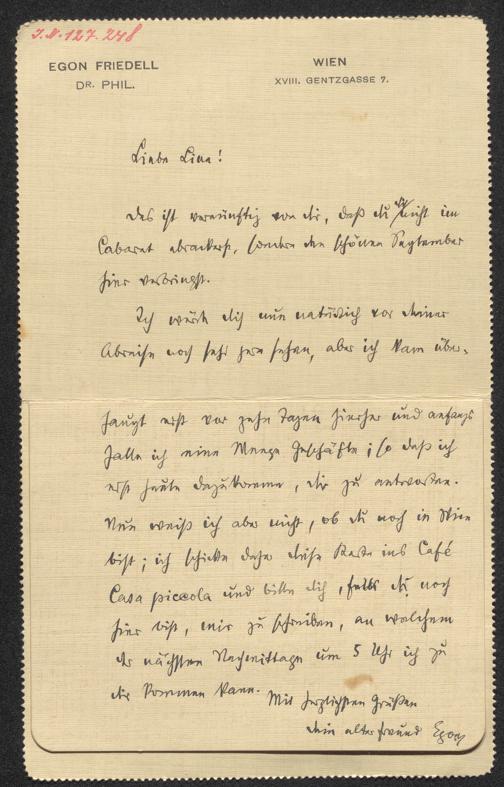 J.N. 127.248
EGON FRIEDELL
DR. PHIL.
WIEN
XVIII. GENTZGASSE 7.
Liebe Lina!
Das ist vernünftig von dir, daß du dich nicht im
Cabaret abrackerst, sondern den schönen September
hier verbringst.
Ich würde dich nun natürlich vor deiner
Abreise noch sehr gern sehen, aber ich kam über-
haupt erst vor zehn Tagen hierher und anfangs
hatte ich eine Menge Geschäfte; so daß ich
erst heute dazukomme, dir zu antworten.
Nun weiß ich aber nicht, ob du noch in Wien
bist; ich schicke daher diese Karte ins Café
Casa piccola und bitte dich, falls du noch
hier bist, mir zu schreiben, an welchem
der nächsten Nachmittage um 5 Uhr ich zu
dir kommen kann.
Mit herzlichsten Grüßen
dein alter Freund Egon